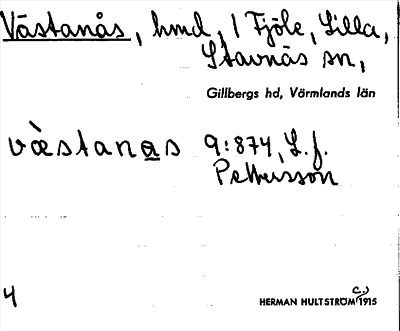 Västanås, hmd, 1 Fjöle, Lilla,
Stavnäs sn,
Gillbergs hd, Värmlands län
væ̀stanas 9:874, L. f.
Pettersson
4
HERMAN HULTSTRÖM (c.) 1915